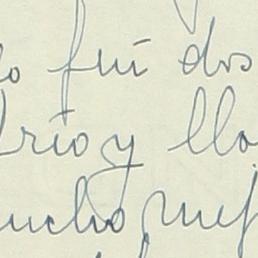 lo fui dos
frio y llo
mucho mej